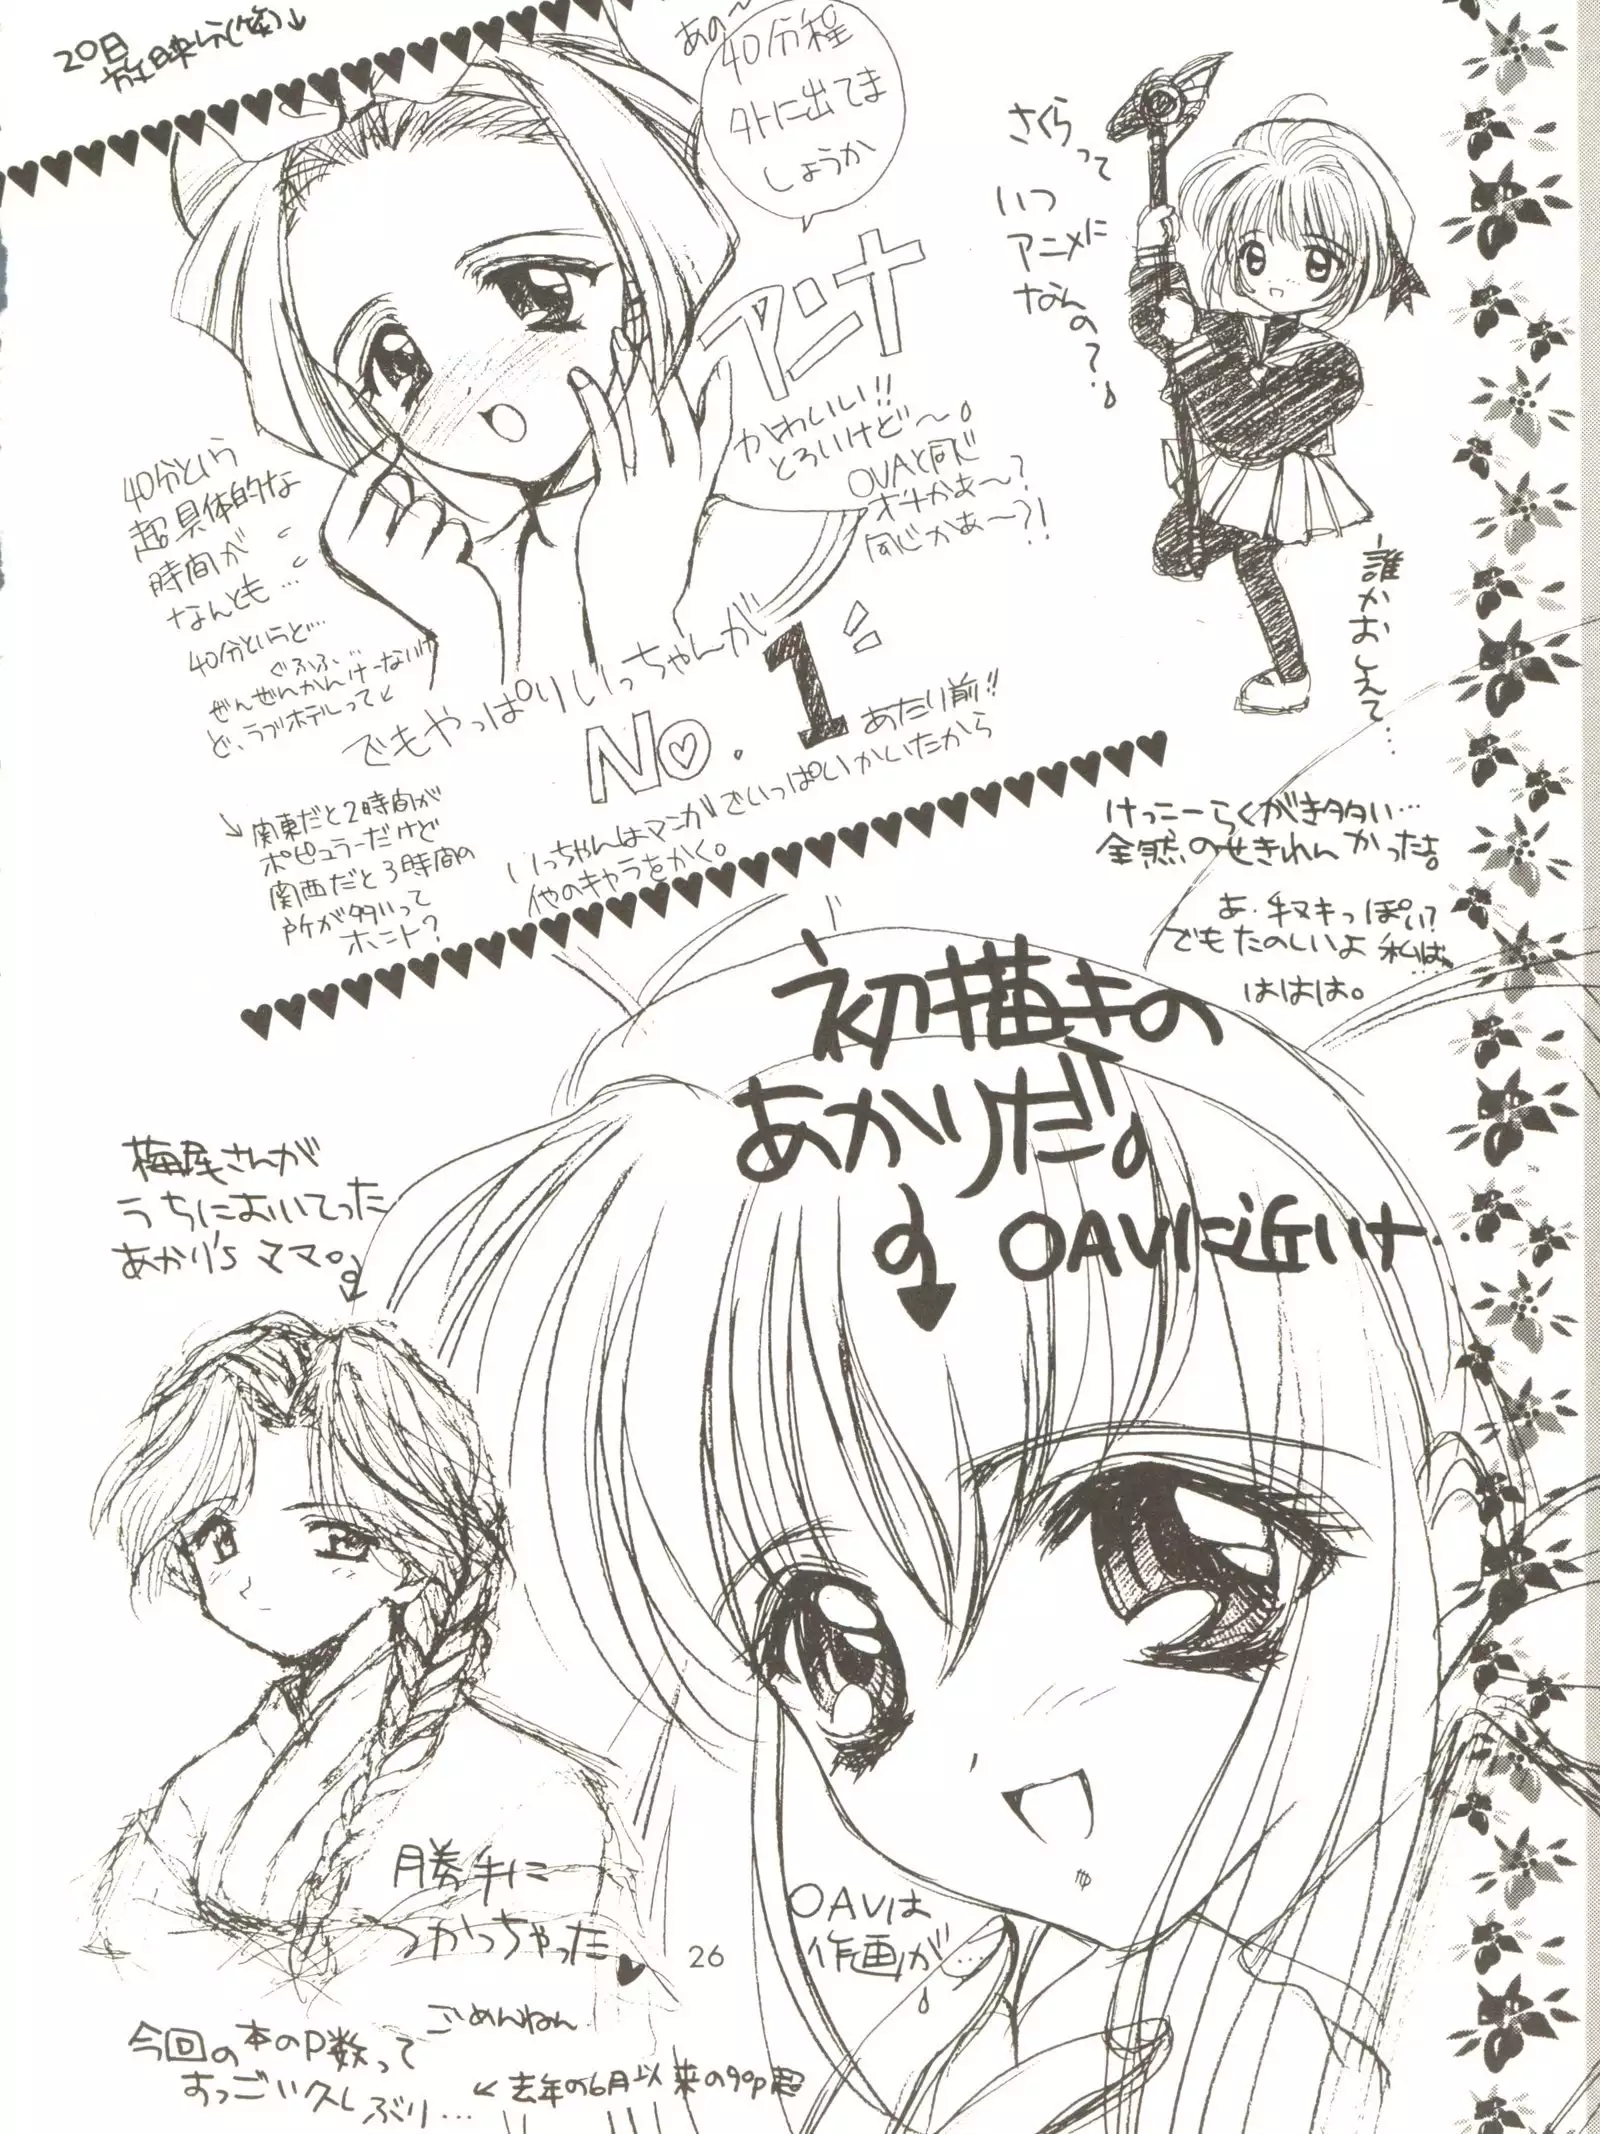 20日
放映分(笑)↓
あの〜
40分程
外に出てま
しょうか
アンナ
かわいい!!
とろいけど〜。
OVAと同じ
オチかあ〜?
同じかあ〜?!
40分という
超具体的な
時間が
なんとも…
40分というと…
ぐふふ
ぜんぜんかんけーないけ
ど、ラブホテルって
→関東だと2時間が
ポピュラーだけど
関西だと3時間の
所が多いって
ホント?
でもやっぱりいっちゃんが
No.1
あたり前!!
いっちゃんはマンガでいっぱいかいたから
他のキャラをかく。
さくら
って
いつ
アニメに
なんの?
誰かおしえて…
けっこーらくがき多い…
全然のせきれんかったよ。
あ・ヤヌキっぽい?
でもたのしいよ私は
ははは。
初描きの
あかりだ。
OAVに近いけど…
梅屋さんが
うちにおいてった
あかり'S ママ。
勝手に
つかっちゃった
ごめんねん
OAVは
作画が…
26
今回の本のP数って
すっごい久しぶり…
←去年の6月以来の90P超